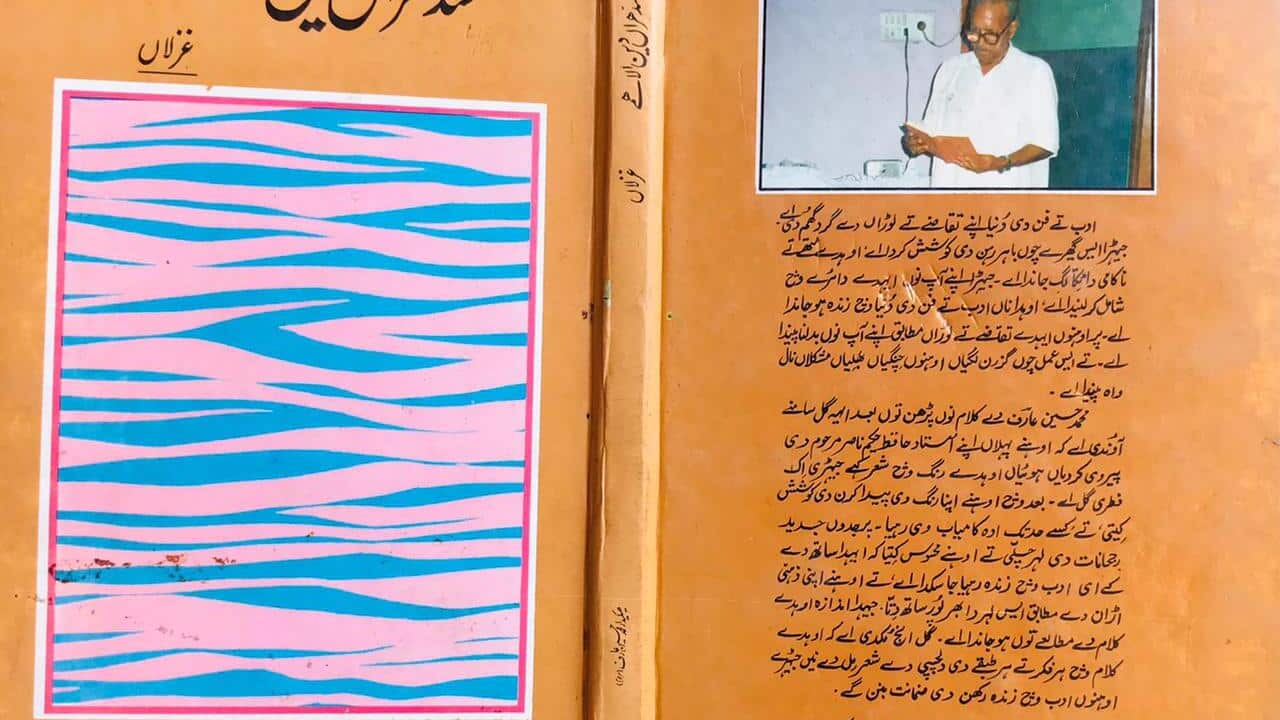 غزلاں
غزلاں
ادب تے فن دی دُنیا اپنے تقاضے تے لوڑاں دے گرد گھم دی اے
جیہڑا ایس گھیرے چوں باہر رہن دی کوشش کردا اے، اوہدے متھے تے
ناکامی دا ٹِکّا لگ جاندا اے۔ جیہڑا اپنے آپ نوں ایہدے دائرے وچ
شامل کر لیندا اے، اوہدا ناں ادب تے فن دی دُنیا وچ زندہ ہو جاندا
اے۔ پر اوہنوں ایہدے تقاضے تے لوڑاں مطابق اپنے آپ نوں بدلنا پیندا
اے۔ تے ایس عمل چوں گزرن لگیاں اوہنوں چنگیاں بھلیاں مشکلاں نال
واہ پیندا اے۔
محمد حسین عارفؔ دے کلام نوں پڑھن توں بعد ایہہ گل سامنے
آؤندی اے کہ اوہنے پہلاں اپنے استاد حافظ حکیم ناصر مرحوم دی
پیروی کردیاں ہوئیاں اوہدے رنگ وچ شعر کہے جیہڑی اِک
فطری گل اے۔ بعد وچ اوہنے اپنا رنگ وی پیدا کرن دی کوشش
کیتی، تے کُسے حد تک اوہ کامیاب وی رہیا۔ پر جدوں جدید
رجحانات دی لہر چلّی تے اوہنے محسوس کیتا کہ ایہدا ساتھ دے
کے ای ادب وچ زندہ رہیا جا سکدا اے، تے اوہنے اپنی ذہنی
اڑان دے مطابق ایس لہر دا بھرپُور ساتھ دِتّا۔ جہدا اندازہ اوہدے
کلام دے مطالعے توں ہو جاندا اے۔ گل انج مُکدی اے کہ اوہدے
کلام وچ ہر فکر تے ہر طبقے دی دلچسپی دے شعر مل دے نیں جیہڑے
اوہنوں ادب وچ زندہ رکھن دی ضمانت بنن گے۔